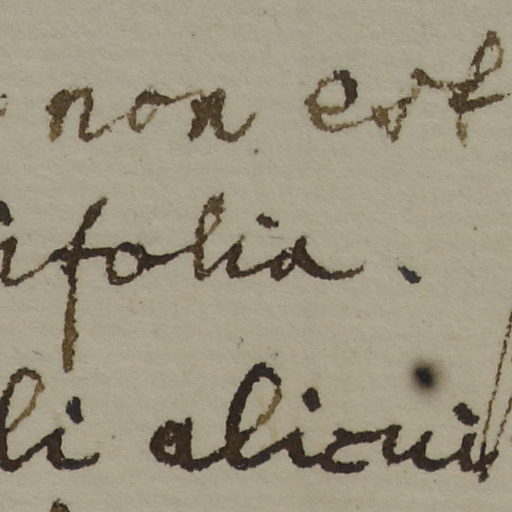 non est
ifolia.
li alicui